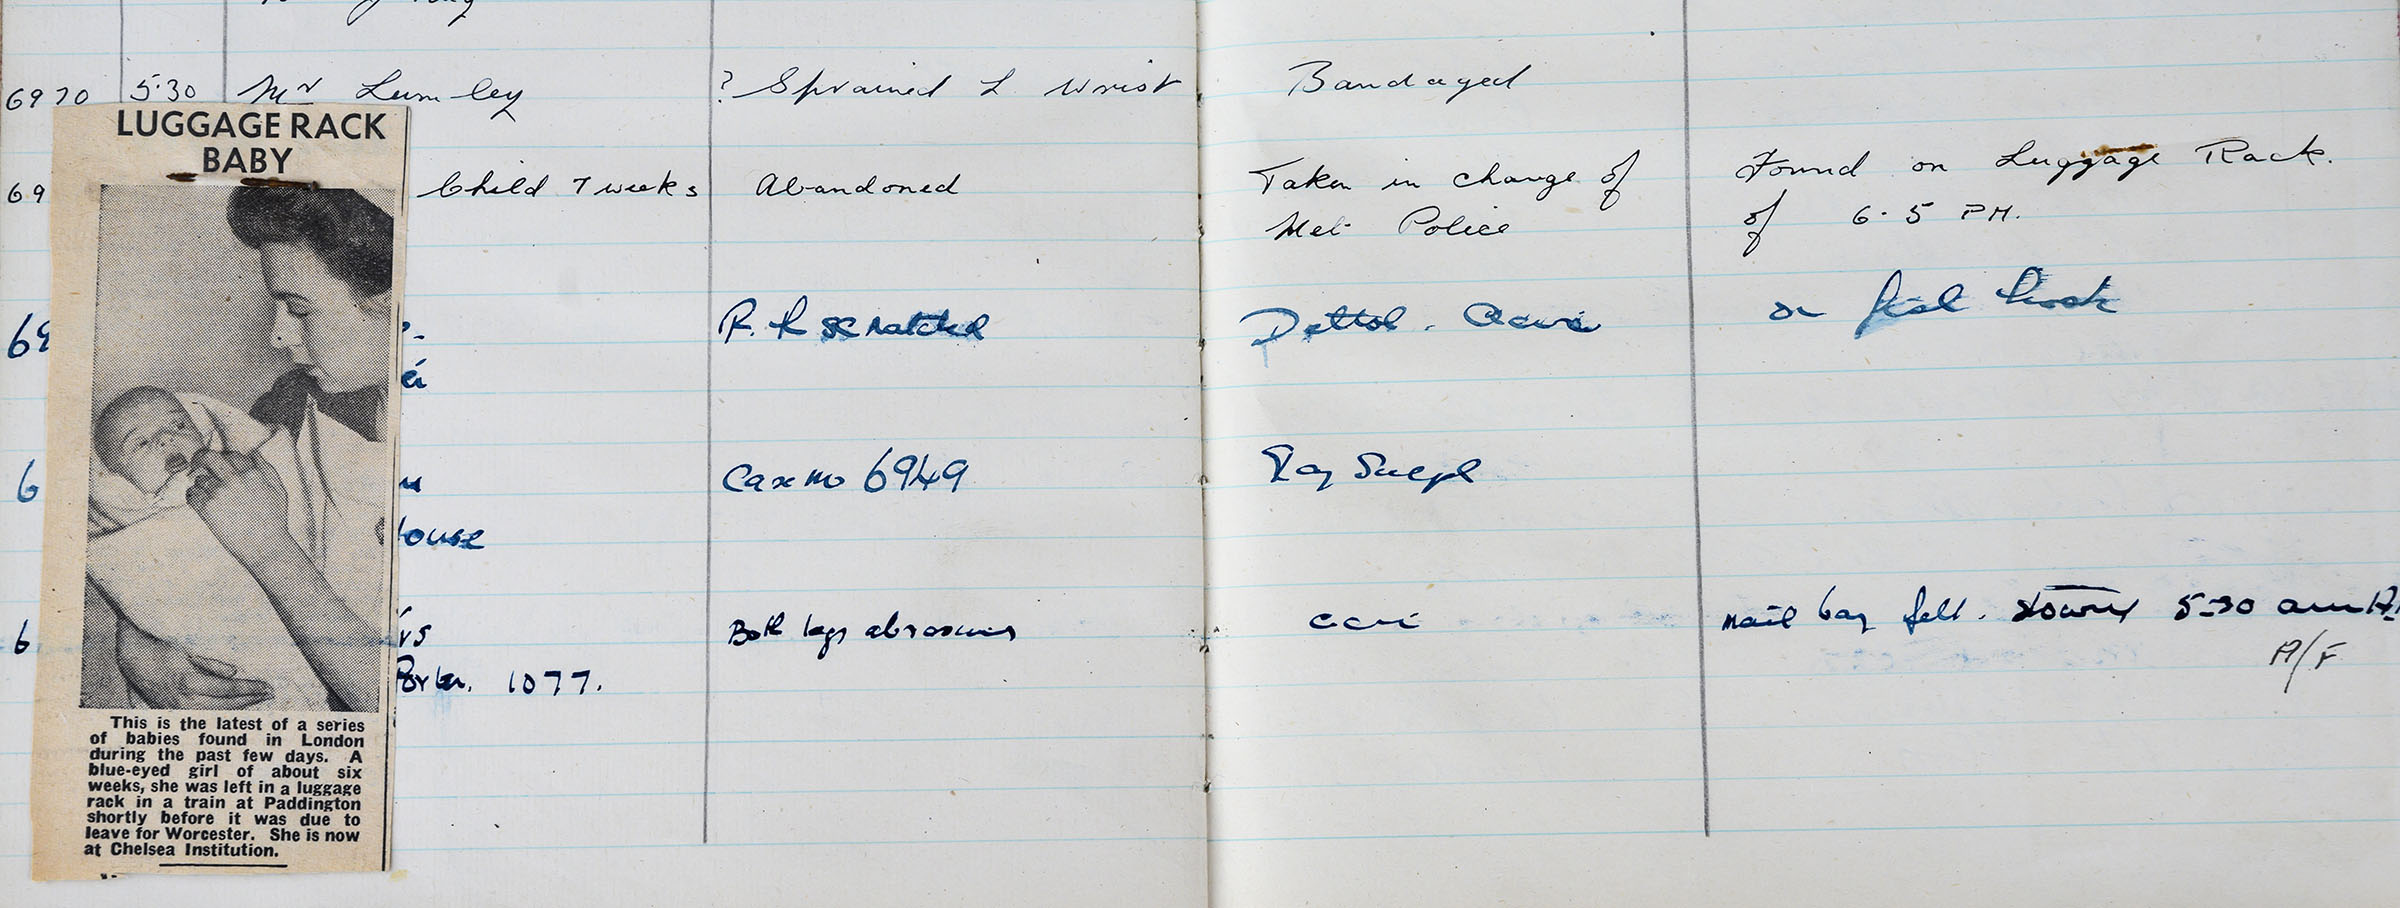 6970 5.30 Mr Lumley ? Sprained L. Wrist Bandaged
LUGGAGE RACK
BABY
69 Child 7 weeks Abandoned Taken in charge of Found on Luggage Rack.
Met Police of 6.5 PM.
69 R. scratched Dettol. on
6 Case No 6949
ouse
6 rs Both legs abrasions mail bag fell. 5-30 am
Porter. 1077. A/F
This is the latest of a series
of babies found in London
during the past few days. A
blue-eyed girl of about six
weeks, she was left in a luggage
rack in a train at Paddington
shortly before it was due to
leave for Worcester. She is now
at Chelsea Institution.